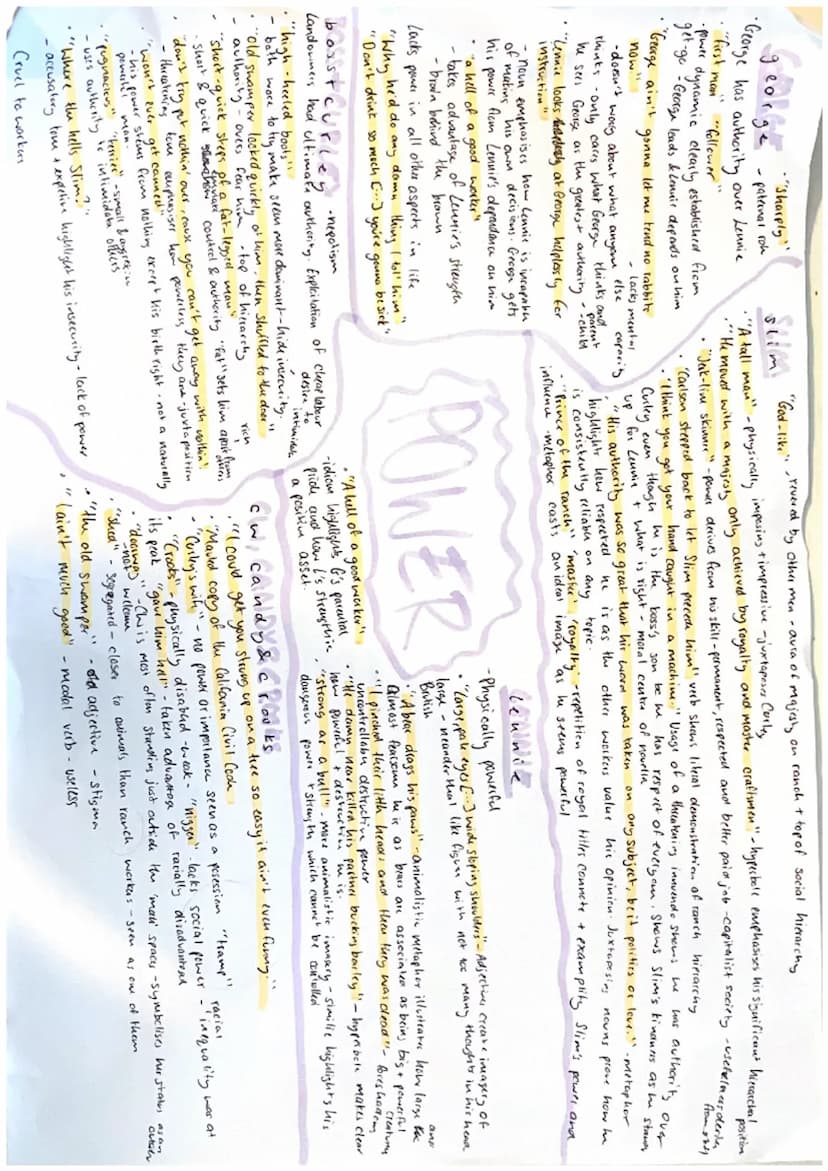 POWER
george
"sharply"
- paternal role
• George has authority over Lennie
• "first man" "follower"
- power dynamic clearly established from
get go - George leads & Lennie depends on him
• "George ain't gonna let me tend no rabbits
now"
- lacks mental capacity
- doesn't worry about what anyone else
thinks - only cares what George thinks and
he sees George as the greatest authority - parent
- child
• "Lennie looks helplessly at George helplessly for
instruction"
- noun emphasises how Lennie is incapable
of making his own decisions. George gets
his power from Lennie's dependance on him
• "a hell of a good worker"
- takes advantage of Lennie's strength
- brain behind the brawn
Lacks power in all other aspects in life
• "Why he'd do any damn thing I tol' him"
• "Don't drink so much [...] you're gonna be sick"
slim
"God-like", revered by other men - aura of majesty on ranch + top of social hierarchy
• "A tall man" - physically imposing + impressive - juxtaposes Curley
• "He moved with a majesty only achieved by royalty and master craftsmen" - hyperbole emphasises his significant hierarchal
position
• "Jerk-line skinner" - power derives from his skill - permanent, respected and better paid job - capitalist society - usefulness derives
from skill
• "Carlson stepped back to let Slim precede him" verb shows literal demonstration of ranch hierarchy
• "I think you got your hand caught in a machine" Usage of a threatening innuendo shows he has authority over
Curley even though he is the boss's son bc he has respect of everyone. Shows Slim's kindness as he stands
up for Lennie + what is right - moral center of novella
• "His authority was so great that his word was taken on any subject, be it politics or love." - metaphor
highlights how respected he is as the other workers value his opinion. Juxtaposing nouns prove how he
is consistently reliable on any topic.
• "Prince of the ranch" "master" "royalty" - repetition of royal titles connote + examplify Slim's power and
influence - metaphor casts an ideal image as he seems powerful
boss + curley
- nepotism
Landowners had ultimate authority. Exploitation of cheap labour
• "high-heeled boots"
- desire to intimidate
- both wore to try make seem more dominant - hide insecurity.
• "Old swamper looked quickly at him, then shuffled to the door"
- authority - others fear him - top of hierarchy
• "short, quick steps of a fat-legged man"
rich
- short & quick emulates control & authority "fat" sets him apart from others
• "don't try put nothin' over, cause you can't get away with nothin'"
- threatening tone emphasises how powerless they are - juxtaposition
• "won't ever get canned"
- his power stems from nothing except his birth right - not a naturally
powerful man.
• "pugnacious" "terrier" - small & aggressive
- uses authority to intimidate others
• "Where the hells Slim?"
- accusatory tone + expletive highlight his insecurity - lack of power
Cruel to workers
• "A hell of a good worker"
- idiom highlights G's parental
pride and how L's strength is
a positive asset.
Lennie
- Physically powerful
• "Large, pale eyes [...] wide sloping shoulders" - Adjectives create imagery of
large - neanderthal like figure with not too many thoughts in his head
Brutish
• "A bear drags his paws" - animalistic metaphor illustrates how large and
almost fearsome he is as bears are associated as being big + powerful
creatures
• "I pinched their little heads and then they was dead" - foreshadowing
uncontrollable destructive power
• "He damn near killed his partner bucking barley" - hyperbole makes clear
how powerful + destructive he is.
• "strong as a bull" - more animalistic imagery - simile highlights his
dangerous power + strength which cannot be controlled
cw, candy & crooks
• "I could get you strung up on a tree so easy it ain't even funny."
• "Mauled copy of the California Civil Code"
• "Curley's wife" - no power or importance seen as a possession "tramp"
• "Crooks" - physically disabled - weak - "nigger" - lacks social power - racial
inequality was at
its peak "gave him hell" - taken advantage of racially disadvantaged
• "doorway" - CW is most often standing just outside the mens' spaces - symbolises her status as an
outsider
- not welcome
• "shed" - segregated - closer to animals than ranch workers - seen as one of them
• "The old swamper" - old adjective - stigma
• "I ain't much good" - modal verb - useless